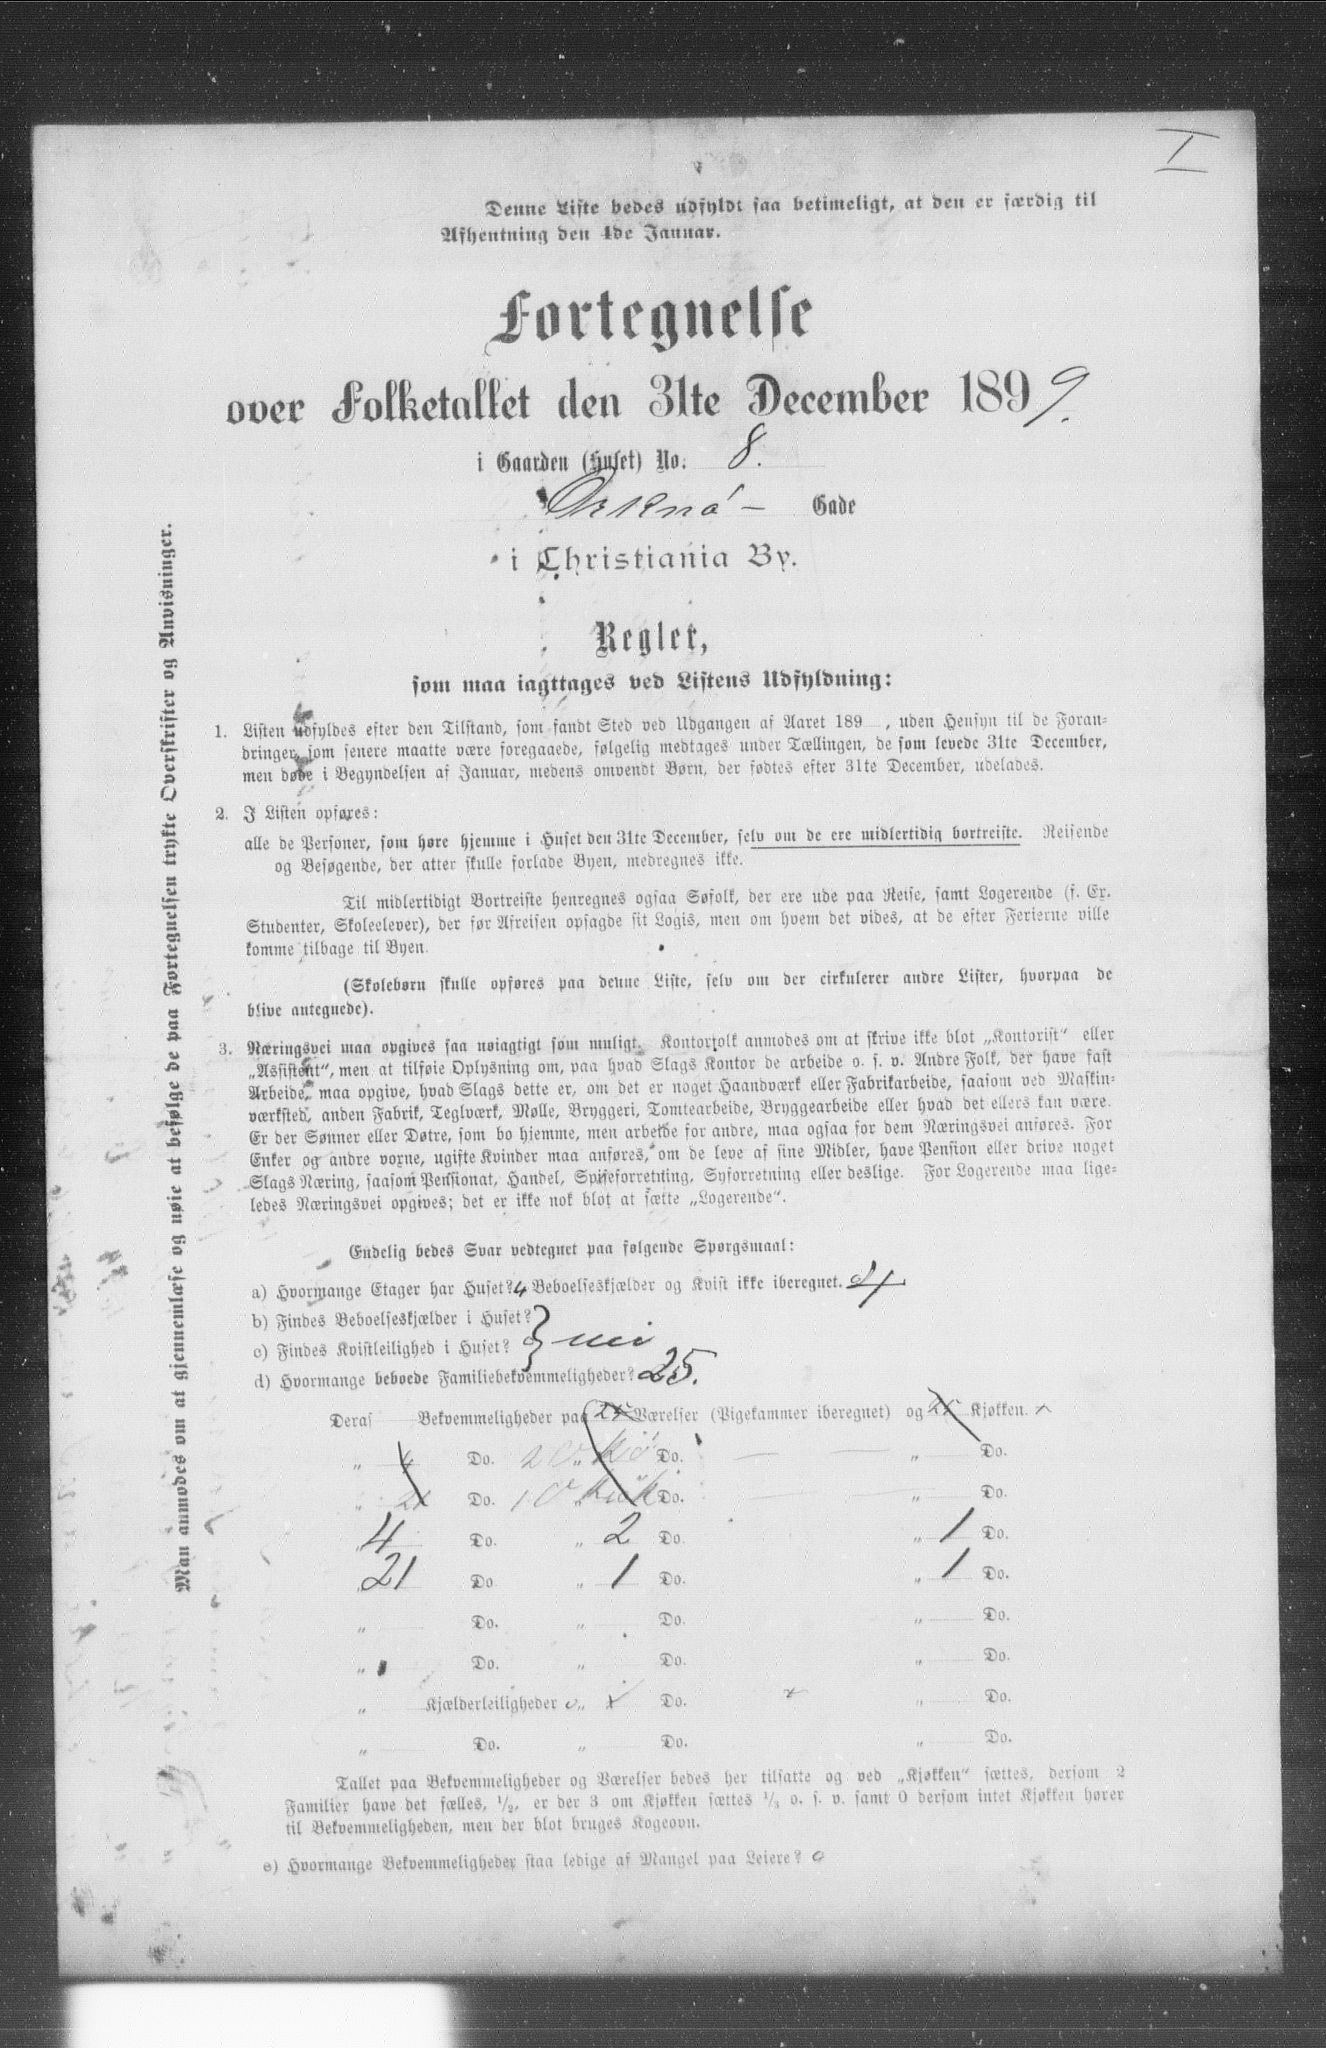 I
Denne Liste bedes udfyldt saa betimeligt, at den er færdig til
Afhentning den 4de Januar.
Fortegnelse
over Folketallet den 31te December 1899.
i Gaarden (Huset) No. 8.
Orknø- Gade
i Christiania By.
Regler,
som maa iagttages ved Listens Udfyldning:
1. Listen udfyldes efter den Tilstand, som fandt Sted ved Udgangen af Aaret 189 , uden Hensyn til de Foran-
dringer, som senere maatte være foregaaede, følgelig medtages under Tællingen, de som levede 31te December,
men døde i Begyndelsen af Januar, medens omvendt Børn, der fødtes efter 31te December, udelades.
2. I Listen opføres:
alle de Personer, som høre hjemme i Huset den 31te December, selv om de ere midlertidig bortreiste. Reisende
og Besøgende, der atter skulle forlade Byen, medregnes ikke.
Til midlertidigt Bortreiste henregnes ogsaa Søfolk, der ere ude paa Reise, samt Logerende (f. Ex.
Studenter, Skoleelever), der før Afreisen opsagde sit Logis, men om hvem det vides, at de efter Ferierne ville
komme tilbage til Byen.
(Skolebørn skulle opføres paa denne Liste, selv om der cirkulerer andre Lister, hvorpaa de
blive antegnede).
3. Næringsvei maa opgives saa nøiagtigt som muligt. Kontorfolk anmodes om at skrive ikke blot „Kontorist“ eller
„Assistent“, men at tilføie Oplysning om, paa hvad Slags Kontor de arbeide o. s. v. Andre Folk, der have fast
Arbeide, maa opgive, hvad Slags dette er, om det er noget Haandværk eller Fabrikarbeide, saasom ved Maskin-
værksted, anden Fabrik, Teglværk, Mølle, Bryggeri, Tomtearbeide, Bryggearbeide eller hvad det ellers kan være.
Er der Sønner eller Døtre, som bo hjemme, men arbeide for andre, maa ogsaa for dem Næringsvei anføres. For
Enker og andre voxne, ugifte Kvinder maa anføres, om de leve af sine Midler, have Pension eller drive noget
Slags Næring, saasom Pensionat, Handel, Spiseforretning, Syforretning eller deslige. For Logerende maa lige-
ledes Næringsvei opgives; det er ikke nok blot at sætte „Logerende“.
Endelig bedes Svar vedtegnet paa følgende Spørgsmaal:
a) Hvormange Etager har Huset? 4 Beboelseskjælder og Kvist ikke iberegnet. 4
b) Findes Beboelseskjælder i Huset?
c) Findes Kvistleilighed i Huset? } nei
d) Hvormange beboede Familiebekvemmeligheder? 25.
Deraf Bekvemmeligheder paa 25 Værelser (Pigekammer iberegnet) og 25 Kjøkken.
„ 4 Do. 2 „ Do. „ Do.
„ 21 Do. 1 „ Do. „ Do.
„ 4 Do. „ 2 Do. „ 1 Do.
„ 21 Do „ 1 Do. „ 1 Do.
„ Do. „ Do. „ Do.
„ Do. „ Do. „ Do.
„ Kjælderleiligheder „ Do. „ Do.
„ Do. „ Do. „ Do.
Tallet paa Bekvemmeligheder og Værelser bedes her tilsatte og ved „Kjøkken“ sættes, dersom 2
Familier have det fælles, 1/2, er der 3 om Kjøkken sættes 1/3 o. s. v. samt 0 dersom intet Kjøkken hører
til Bekvemmeligheden, men der blot bruges Kogeovn.
e) Hvormange Bekvemmeligheder staa ledige af Mangel paa Leiere? 0
Man anmodes om at gjennemlæse og nøie at befølge de paa Fortegnelsen trykte Overskrifter og Anvisninger.